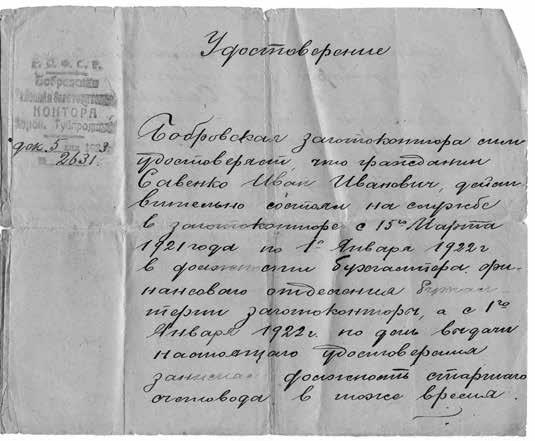 Удостоверение
Р. С. Ф. С. Р.
Бобровская
КОНТОРА
док. 5
№ 2631.
Бобровская заготконтора сим
удостоверяет что гражданин
Савенко Иван Иванович, дейст
вительно состоял на службе
в заготконторе с 15го Марта
1921 года по 1е Января 1922 г
в должности бухгалтера фи-
нансоваго отделения бухгал
терии заготконторы, а с 1го
Января 1922 г. по день выдачи
настоящаго удостоверения
занимал должность старшаго
счетовода в той же